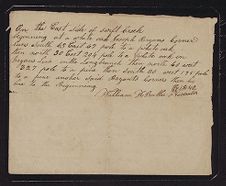 On the East side of Swift Creek
beginning at a white oak Joseph Bryans corner
lines South 45 East 62 pole to a white oak
then north 50 East 204 pole to a white oak on
Bryans line in the Long branch then north 40 west
227 pole to a pine then South 20 west 190 pole
to a pine another Said Bryants corners then his
line to the Beginning
William H Surveyor